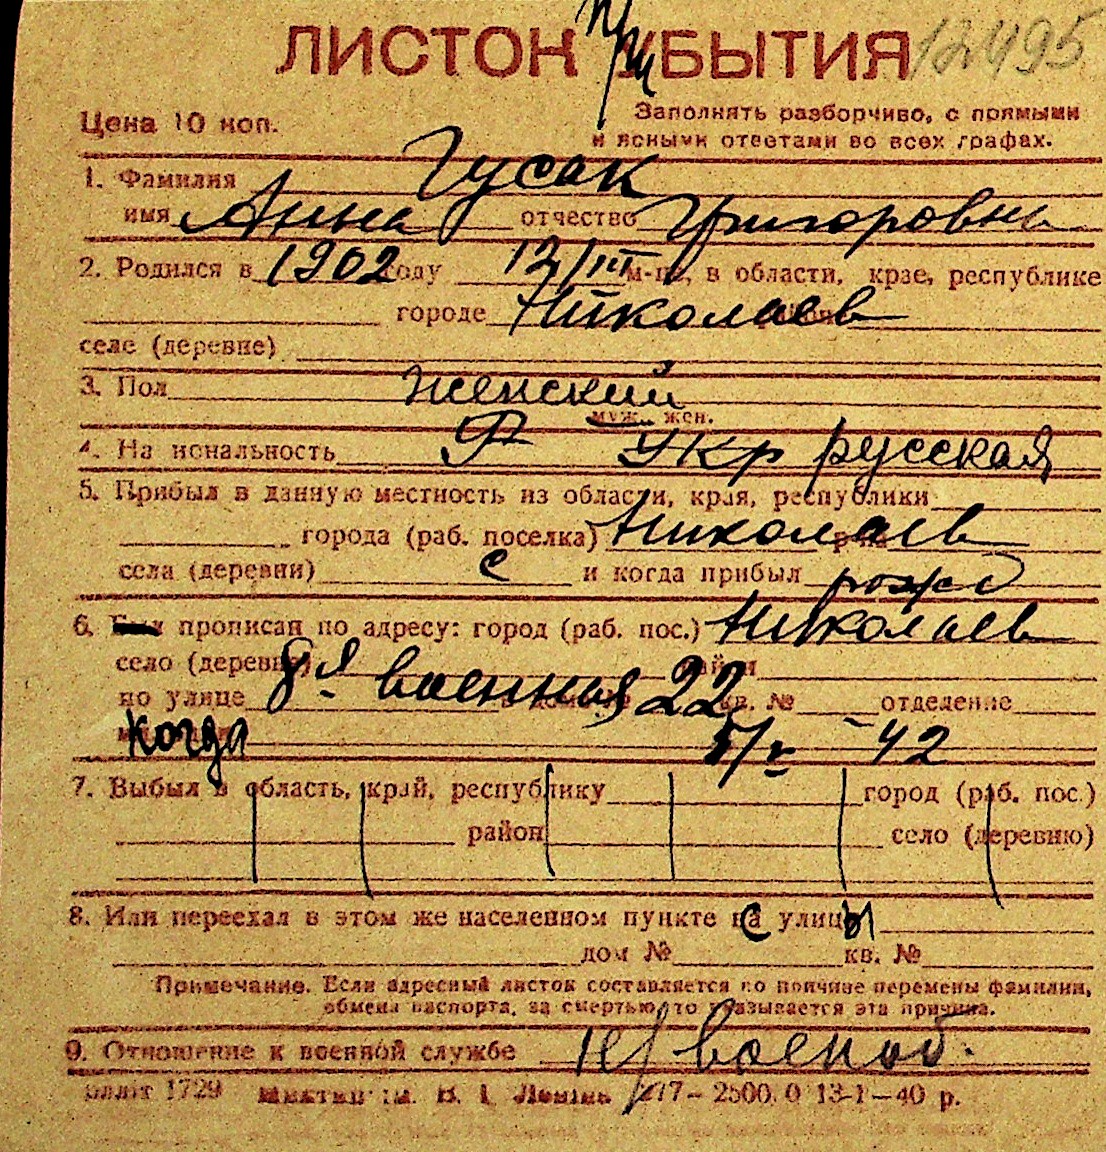 ЛИСТОК УБЫТИЯ При 12495
Цена 10 коп. Заполнять разборчиво, с прямыми
и ясными ответами во всех графах.
1. Фамилия Гусак
имя Анна отчество Григоровна
2. Родился в 1902 году 12/III м-це, в области, крае, республике
городе Николаев
селе (деревне)
3. Пол женский
муж., жен.
4. Национальность укр русская
5. Прибыл в данную местность из области, края, республики
города (раб. поселка) Николаев р-на
села (деревни) с и когда прибыл рожд
6. прописан по адресу: город (раб. пос.) Николаев
село (деревня) район
по улице 8я военная 22 кв. № отделение
когда 5/V - 42
7. Выбыл в область, край, республику город (раб. пос.)
район село (деревню)
8. Или переехал в этом же населенном пункте с улицы
дом № кв. №
Примечание. Если адресный листок составляется по причине перемены фамилии,
обмена паспорта, за смертью, то указывается эта причина.
9. Отношение к военной службе н/военноб.
1729 В. І. Леніна 2500.0 13-1-40 р.